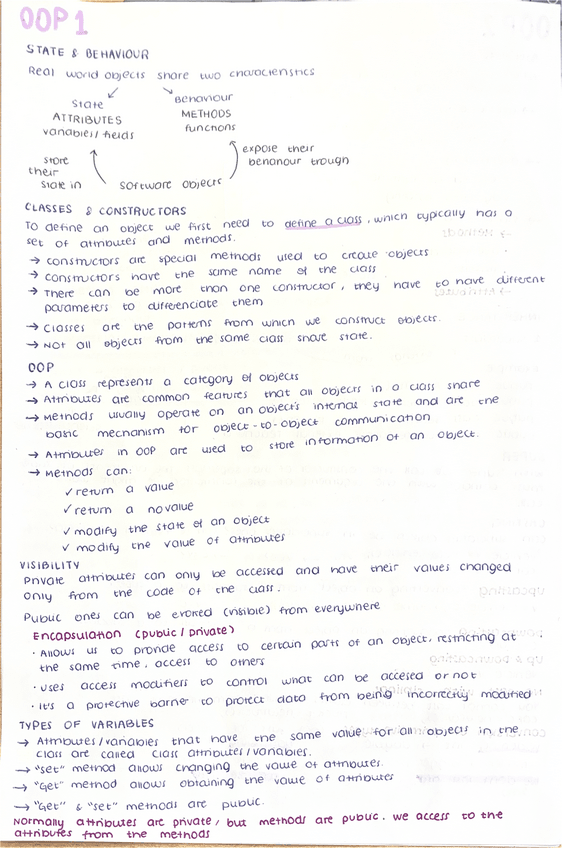 OOP 1
STATE & BEHAVIOUR
Real world objects share two characteristics
State
ATTRIBUTES
variables/ fields
Behaviour
METHODS
functions
store
their
state in
software objects
expose their
behaviour trough
CLASSES & CONSTRUCTORS
To define an object we first need to define a class, which typically has a
set of attributes and methods.
→ constructors are special methods used to create objects
→ Constructors have the same name of the class
→ There can be more than one constructor, they have to have different
parameters to differenciate them
→ Classes are the patterns from which we construct objects.
→ Not all objects from the same class share state.
OOP
→ A class represents a category of objects
→ Attributes are common features that all objects in a class share
→ Methods usually operate on an object's internal state and are the
basic mechanism for object-to-object communication
→ Attributes in OOP are used to store information of an object.
→ Methods can:
✓ return a value
✓ return a no value
✓ modify the state of an object
✓ modify the value of attributes
VISIBILITY
Private attributes can only be accessed and have their values changed
only from the code of the class.
Public ones can be evoked (visible) from everywhere
Encapsulation (public / private)
· Allows us to provide access to certain parts of an object, restricting at
the same time, access to others
· Uses access modifiers to control what can be accesed or not
· It's a protective barrier to protect data from being incorrectly modified
TYPES OF VARIABLES
→ Attributes/variables that have the same value for all objects in the
class are called class attributes/variables.
→ "set" method allows changing the value of attributes.
→ "Get" method allows obtaining the value of attributes
→ "Get" & "set" methods are public.
Normally attributes are private, but methods are public. We access to the
attributes from the methods